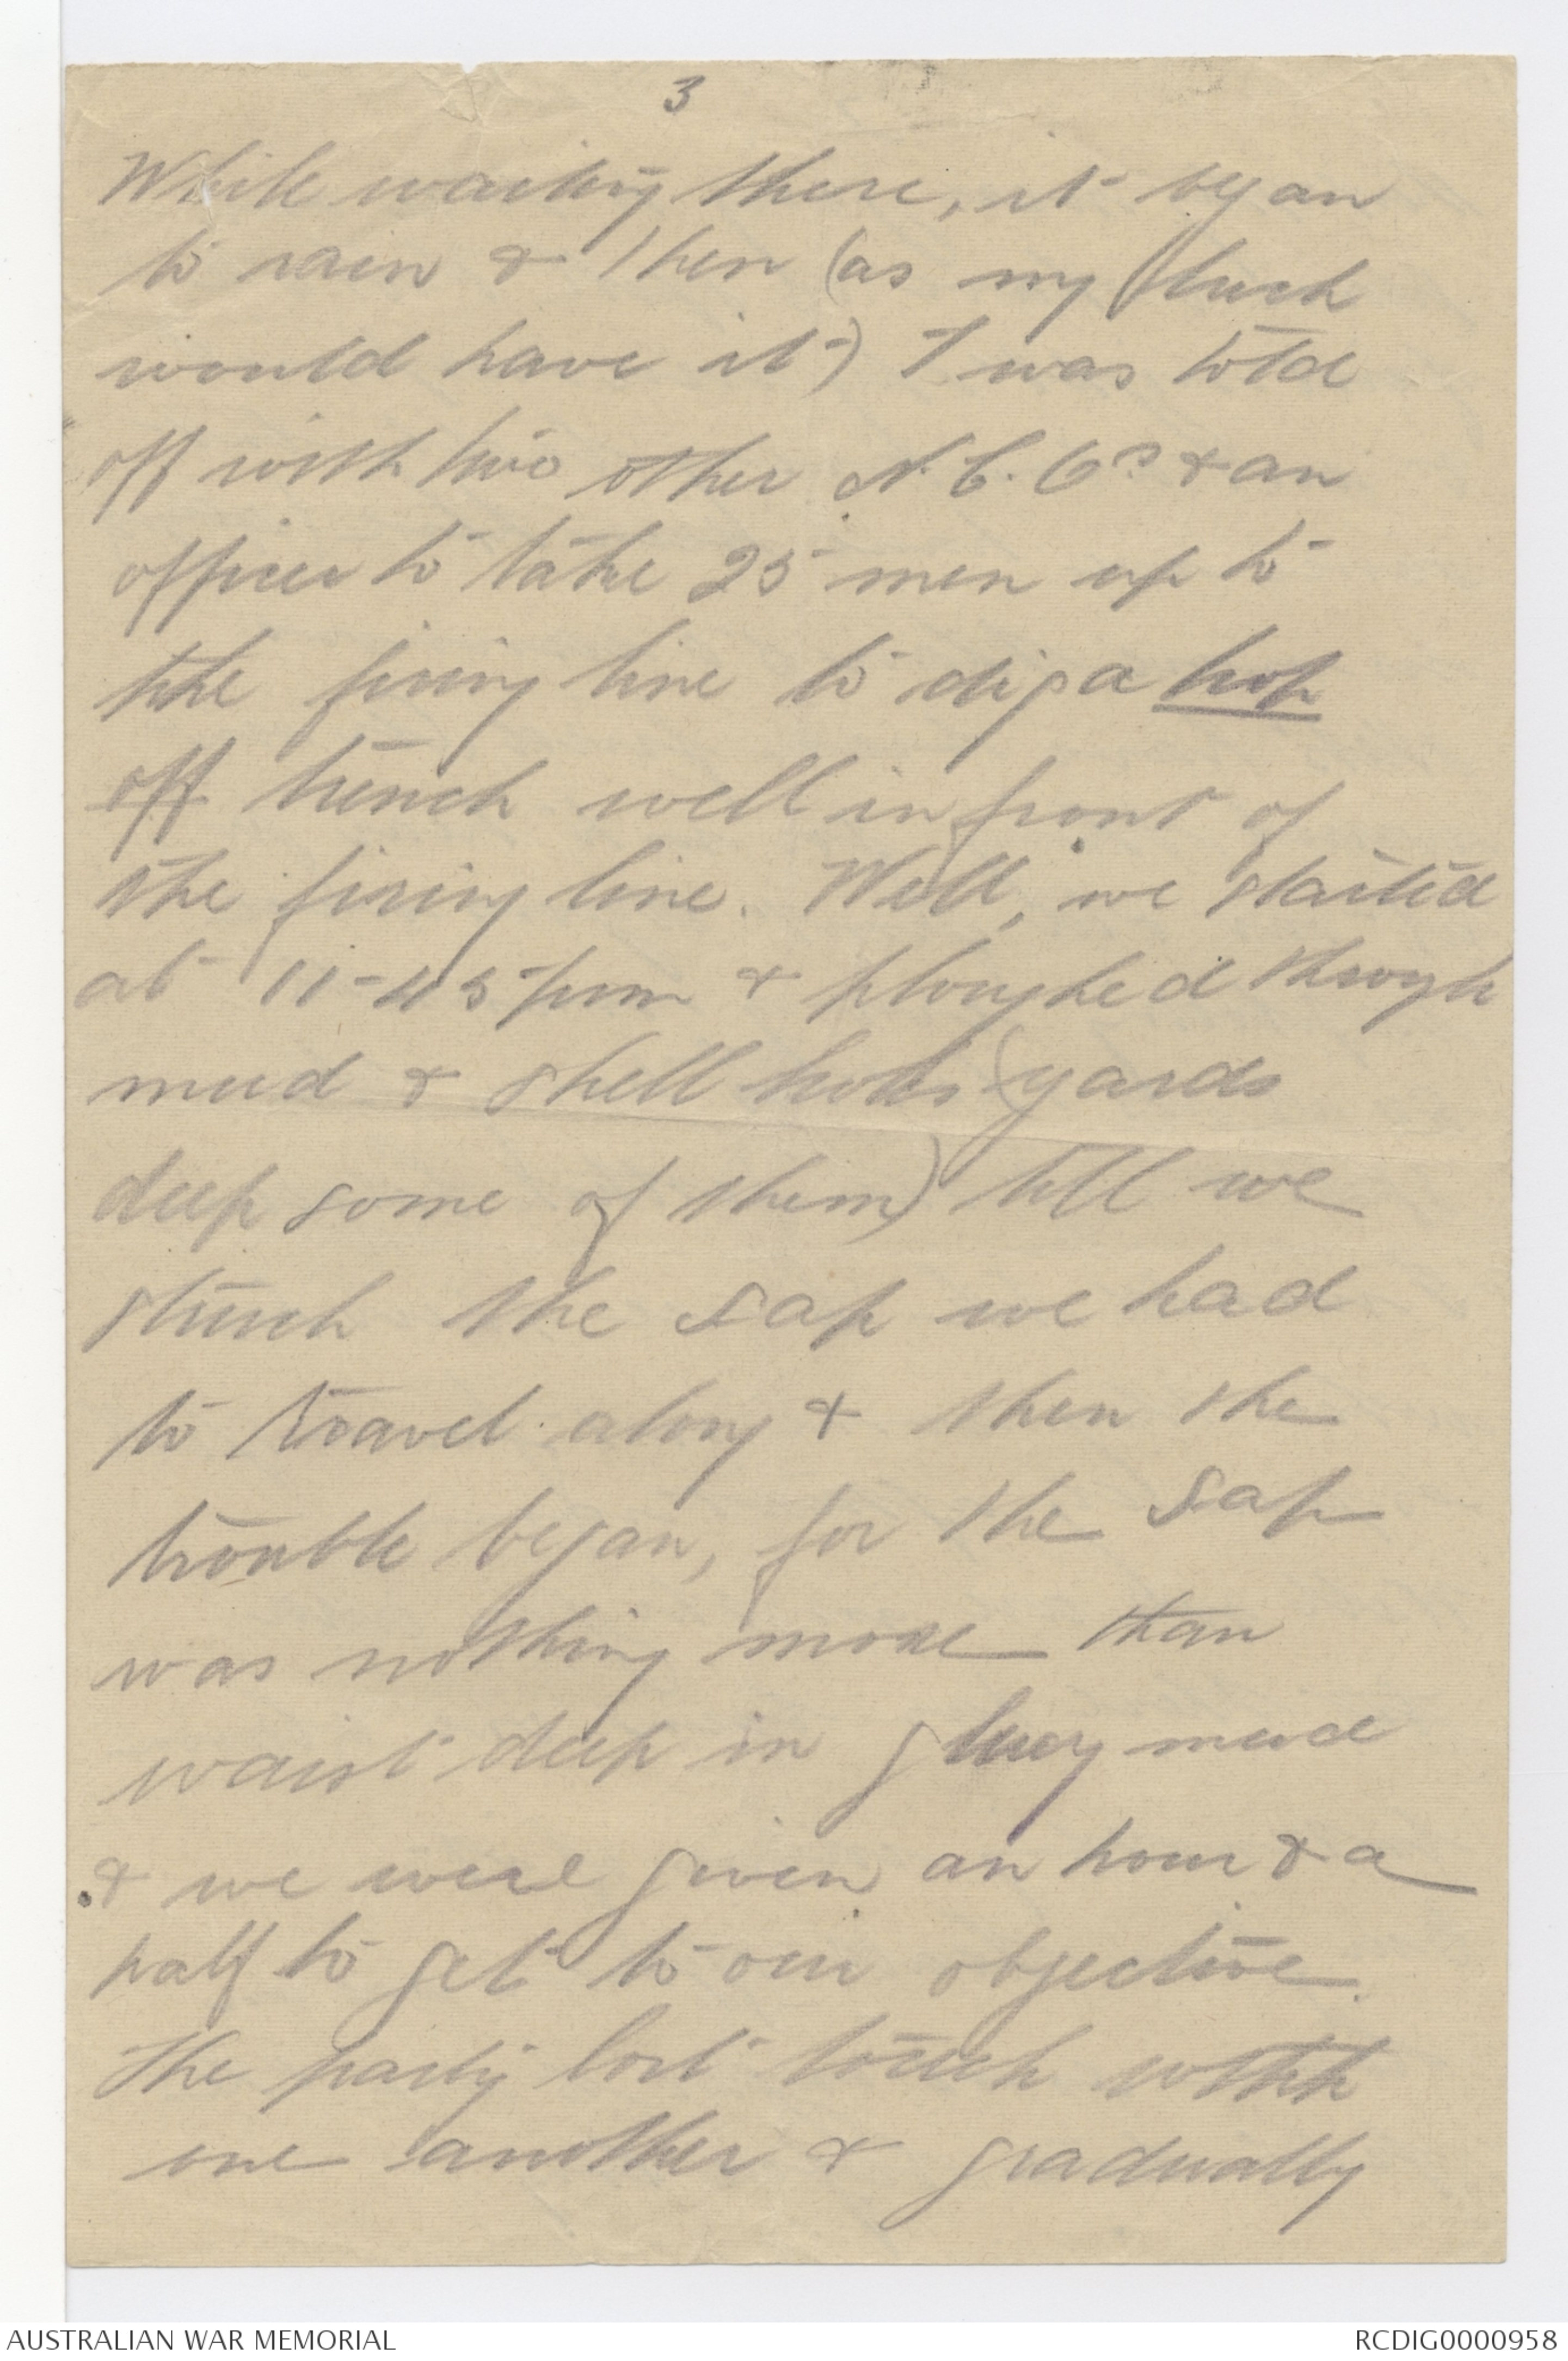 3
While waiting there, it began
to rain & then (as my luck
would have it) I was told
off with two other N.C.Os & an
officer to take 25 men up to
the firing line to dig a hop
off trench well in front of
the firing line. Well, we started
at 11-45 pm & ploughed through
mud & shell holes (yards
deep some of them) till we
struck the sap we had
to travel along & then the
trouble began, for the sap
was nothing more than
waist deep in gluey mud
& we were given an hour & a
half to get to our objective.
The party lost touch with
one another & gradually
AUSTRALIAN WAR MEMORIAL
RCDIG0000958